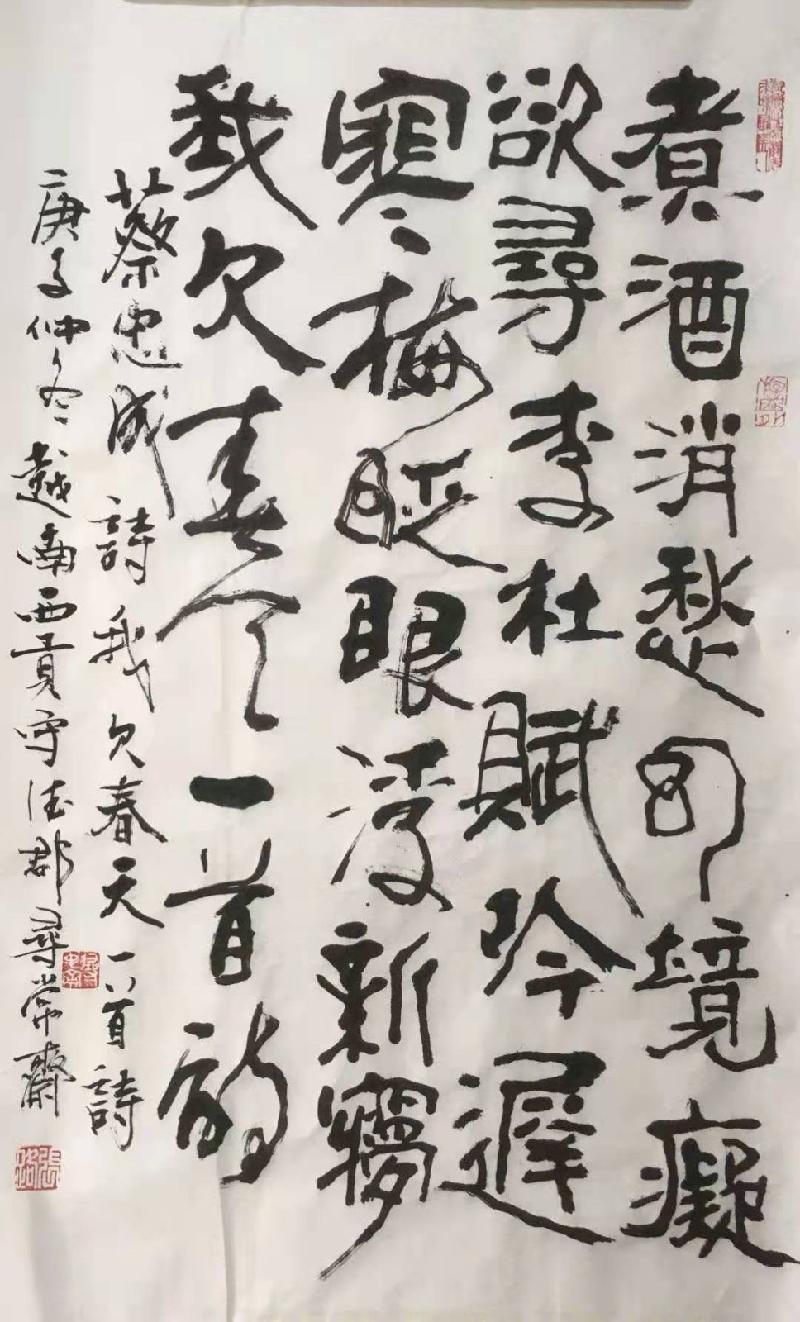 煮酒消愁幻境癡
欲尋李杜賦吟遲
寒梅眨眼淩新夢
我欠春天一首詩
蔡忠成詩我欠春天一首詩
庚子仲冬越南西貢守德郡尋常齋